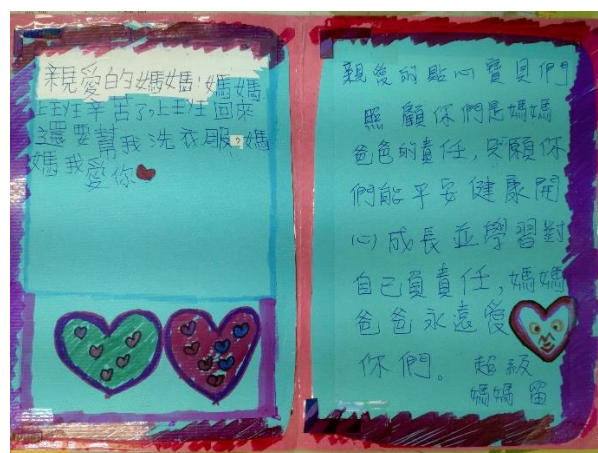 親愛的媽媽:媽媽
上班辛苦了,上班回來
還要幫我洗衣服。媽
媽我愛你
親愛的點心寶貝們
照顧你們是媽媽
爸爸的責任,只願你
們能平安健康開
心成長並學習對
自己負責任,媽媽
爸爸永遠愛
你們。超級
媽媽 留